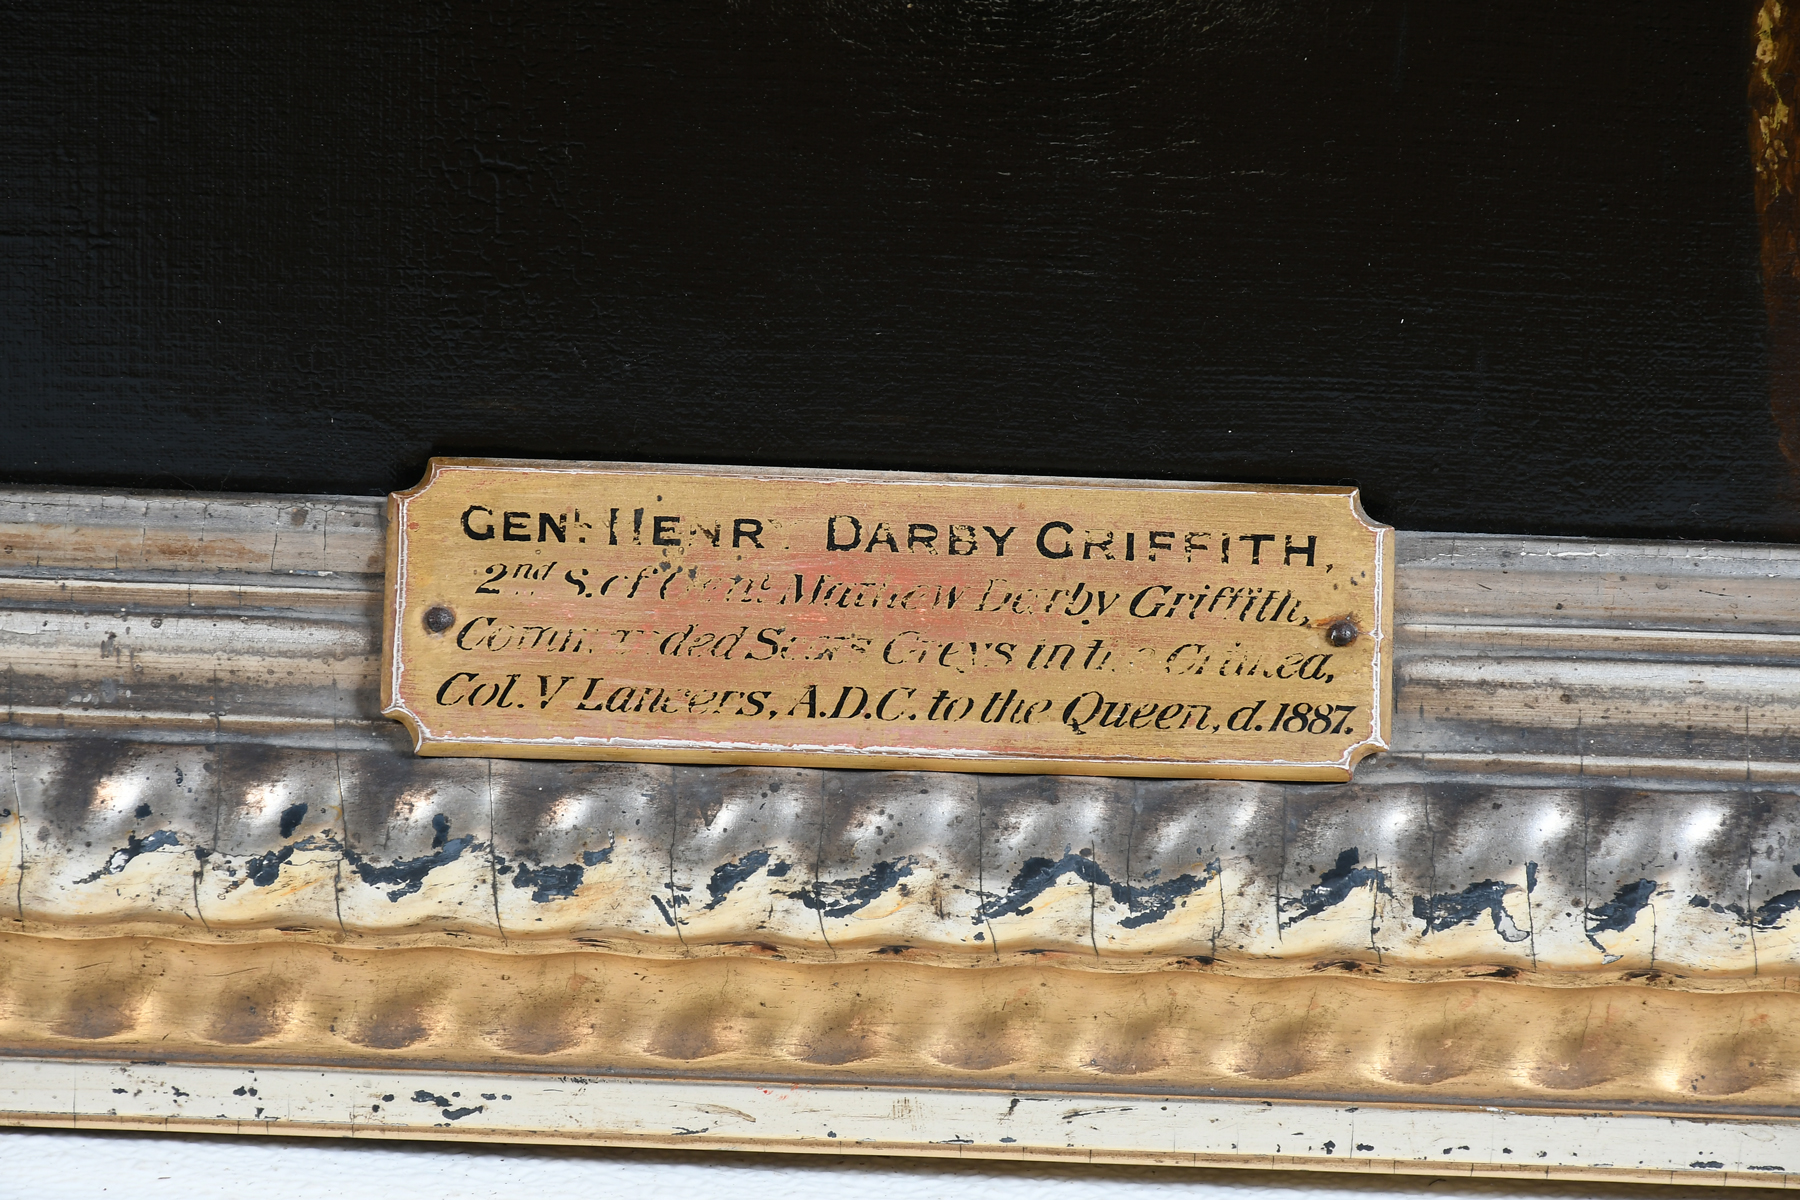 GENL. HENRY DARBY GRIFFITH,
2nd S. of Genl. Mathew Darby Griffith,
Commanded Scots Greys in the Crimea,
Col. V Lancers, A.D.C. to the Queen, d. 1887.